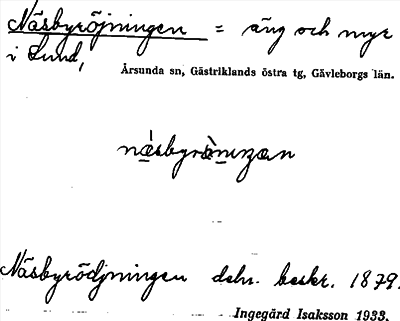 Näsbyröjningen = äng och myr
i Lund,
Årsunda sn, Gästriklands östra tg, Gävleborgs län.
Näsbyrödjningen dshr. beskr. 1879.
Ingegärd Isaksson 1933.